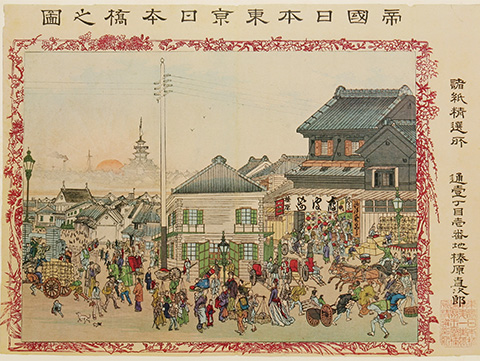 帝國日本東京日本橋之圖
諸紙精選所
通壹丁目壹番地榛原直次郎